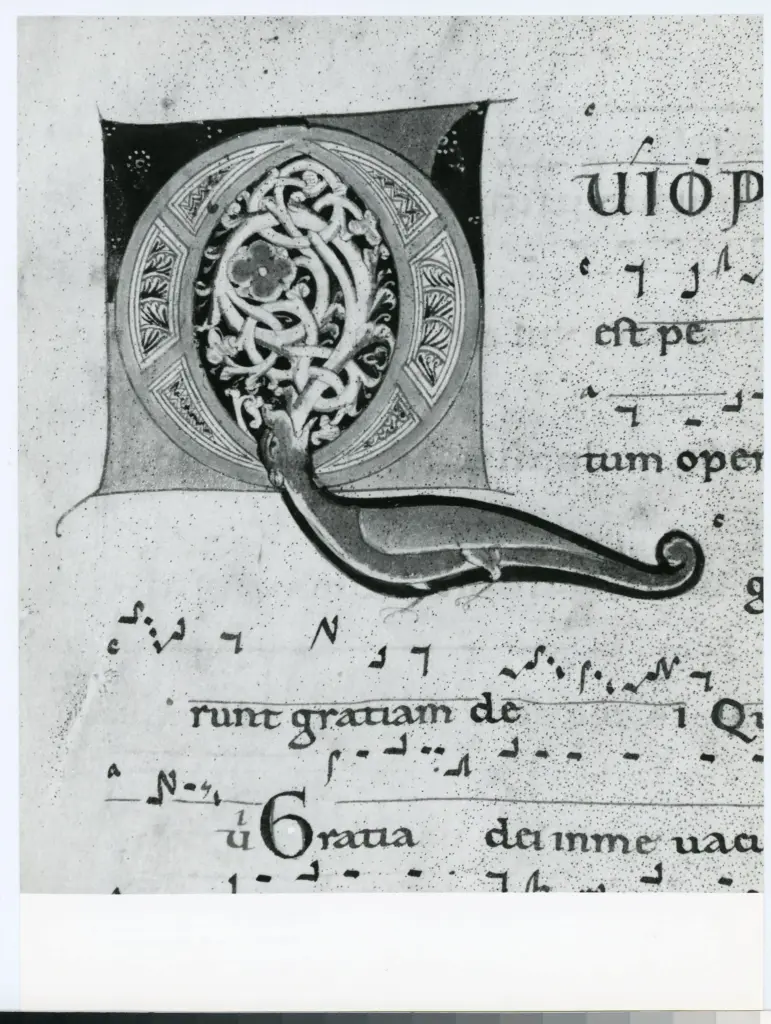 QUIŌP
est pe
tum oper
g
runt gratiam de i Qu
v̇ Gratia dei in me uacu